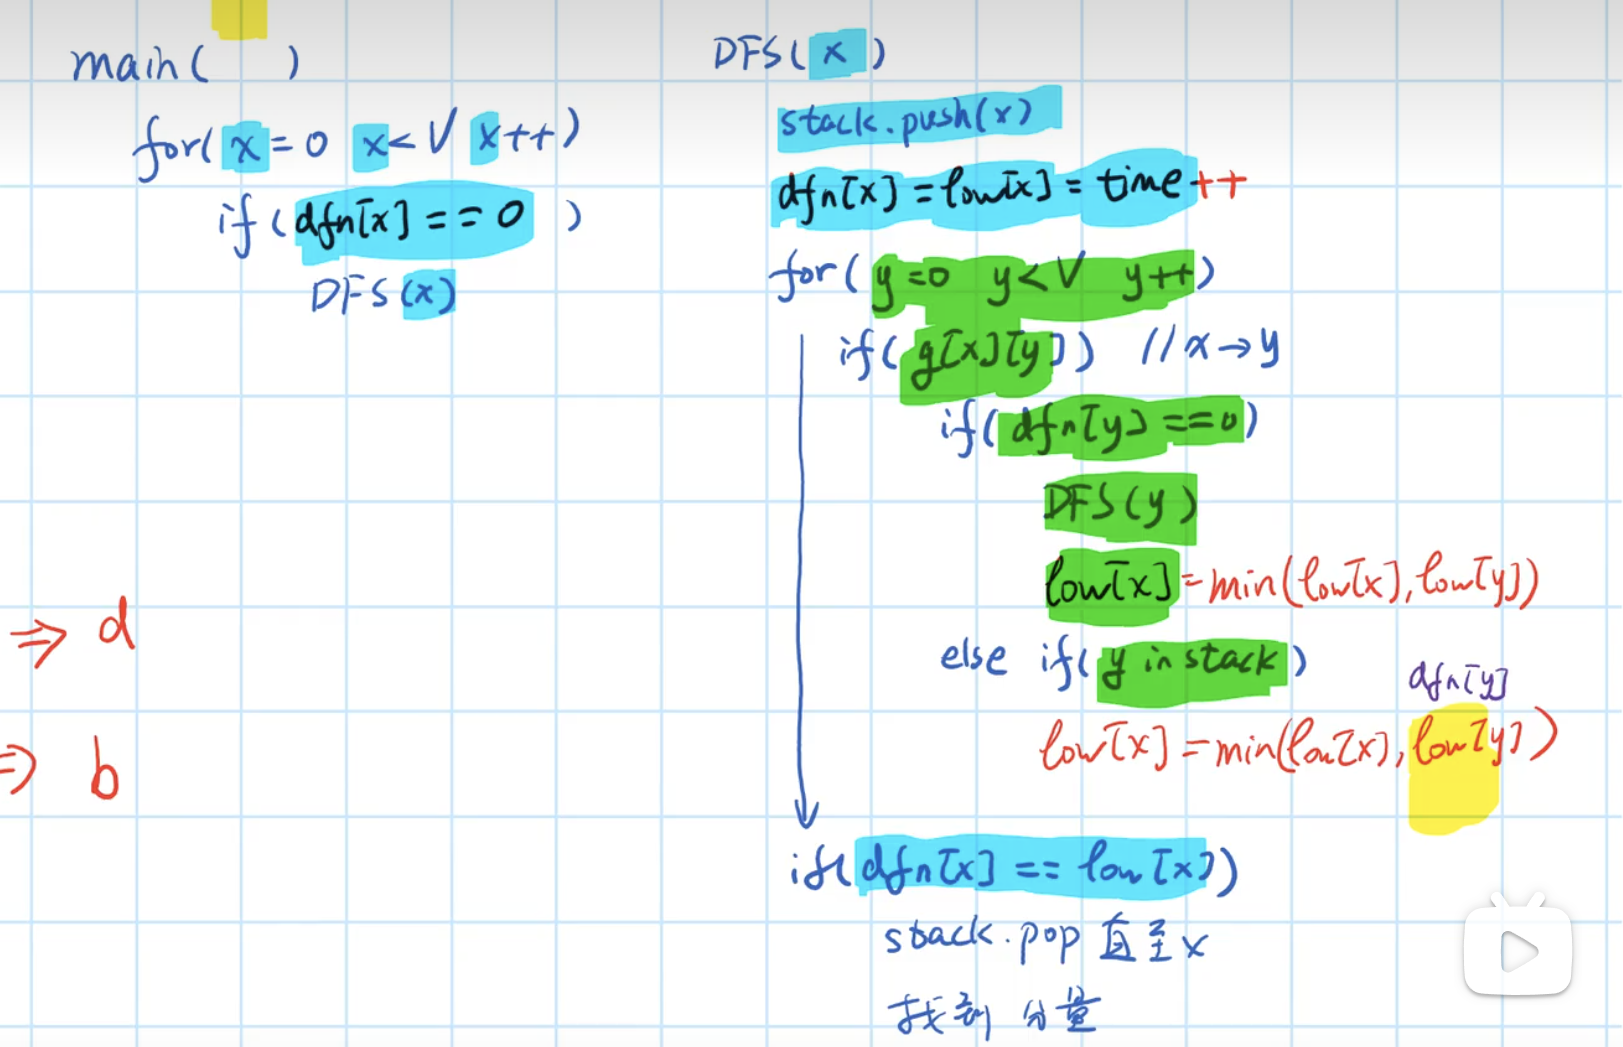 main( )
for( x = 0 x < V x++)
if( dfn[x] == 0 )
DFS(x)
⇒ d
⇒ b
DFS( x )
stack.push(x)
dfn[x] = low[x] = time++
for( y=0 y<V y++)
if( g[x][y] ) //x→y
if( dfn[y] ==0)
DFS(y)
low[x] = min(low[x], low[y])
else if( y in stack )
dfn[y]
low[x] = min(low[x], low[y])
if( dfn[x] == low[x])
stack.pop 直至 x
找到 分量